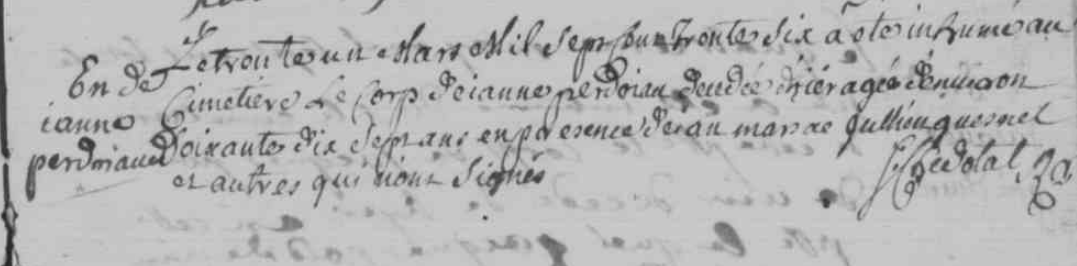 En de
ianne
perdoiau
Le trente un Mars Mil sept cens trente six à ete inhumé au
Cimetiere Le Corp de ianne perdoiau decedée d'hier agée d'environ
soixante dix sept ans en presence de ian
et autres qui n'ont signés